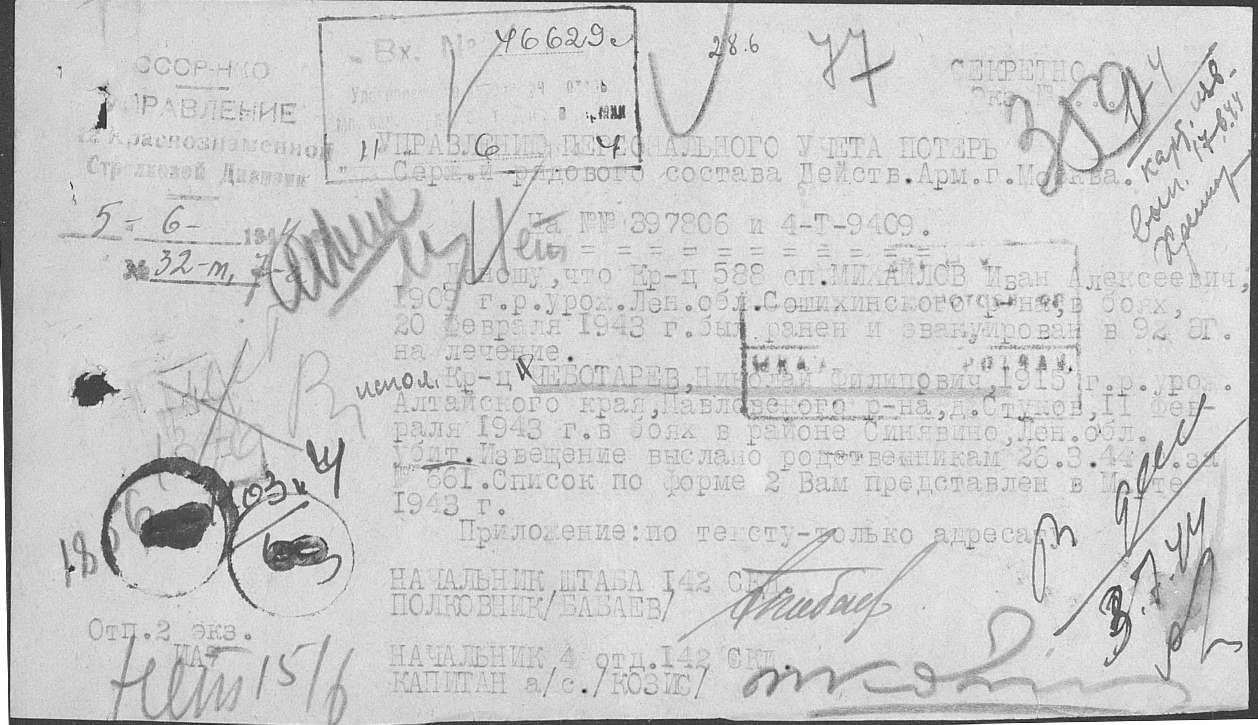 СССР-НКО
УПРАВЛЕНИЕ
Краснознаменной
Стрелковой Дивизии
5 - 6 - 1944
№ 32-т,
Вх. № 46629с
11 6 4
28.6
77
СЕКРЕТНО
Экз №
УПРАВЛЕНИЕ ПЕРСОНАЛЬНОГО УЧЕТА ПОТЕРЬ
Серж.и рядового состава Действ.Арм.г.Москва.
На №№ 397806 и 4-Т-9409.
= = = = = = = = = = =
Доношу,что Кр-ц 588 сп.МИХАЙЛОВ Иван Алексеевич,
1909 г.р.урож.Лен.обл.Сошихинского р-на,в боях,
20 февраля 1943 г.был ранен и эвакуирован в 92 ЭГ.
на лечение.
испол. Кр-ц ЧЕБОТАРЕВ,Николай Филипович,1915 г.р.урож.
Алтайского края,Павловского р-на,д.Стуков,II фев-
раля 1943 г.в боях в районе Синявино,Лен.обл.
убит.Извещение выслано родственникам 26.3.44 г.за
№ 661.Список по форме 2 Вам представлен в Марте
1943 г.
Приложение:по тексту-только адресату.
НАЧАЛЬНИК ШТАБА I42 СКД.
ПОЛКОВНИК/БАБАЕВ/
Отп.2 экз.
НАЧАЛЬНИК 4 отд.I42 СКД.
КАПИТАН а/с./КОЗИС/
Нет 15/6
карт.
вып. 17.6.44
3.7.44